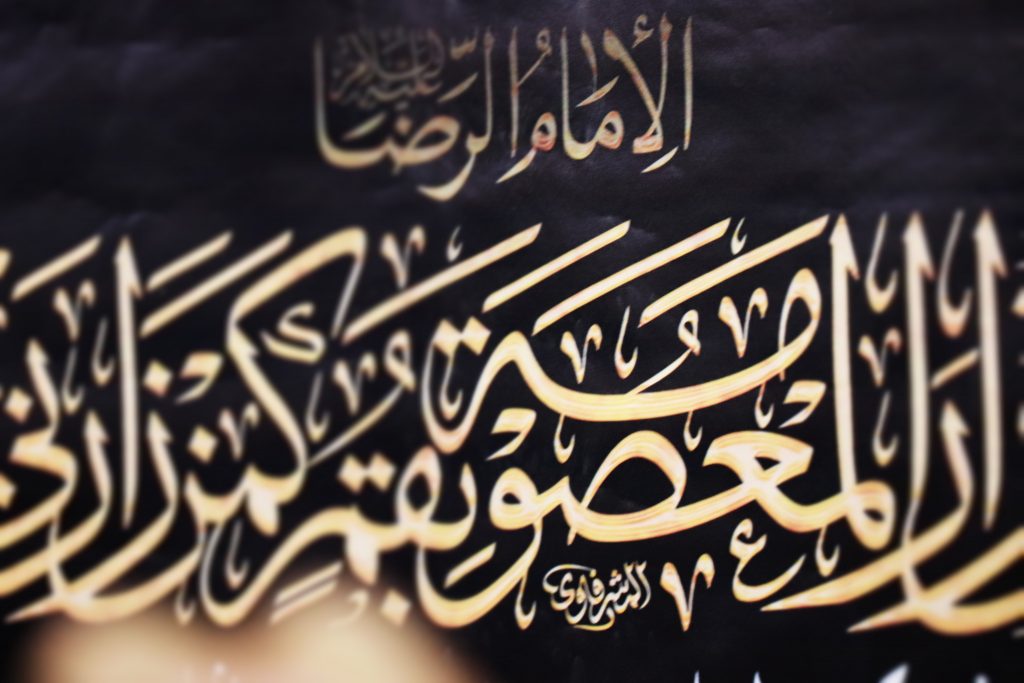 الإمام الرضا عليه السلام
زار المعصومة بقم كمن زارني
المشرفاوي